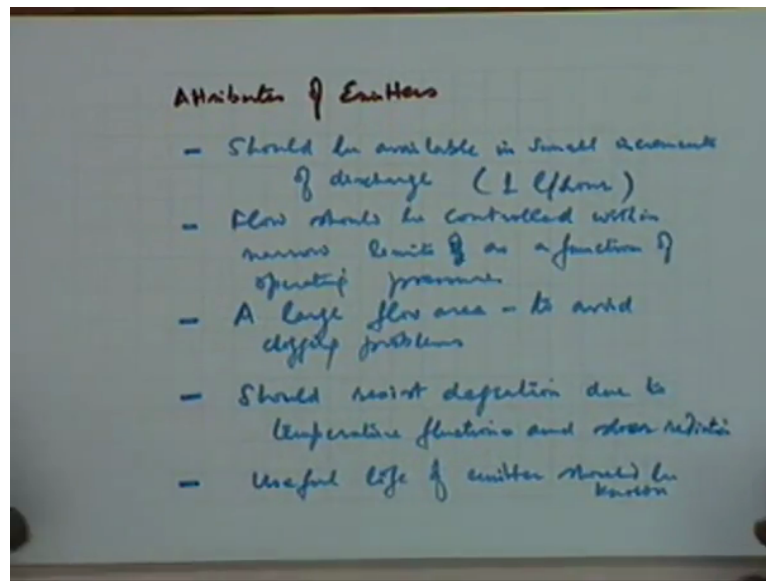 Attributes of Emitters
- Should be available in small increments
of discharge (1 l/hour)
- Flow should be controlled within
narrow limits as a function of
operating pressure
- A large flow area - to avoid
clogging problems
- Should resist due to
temperature and solar radiation
- Useful life of emitter should be
known